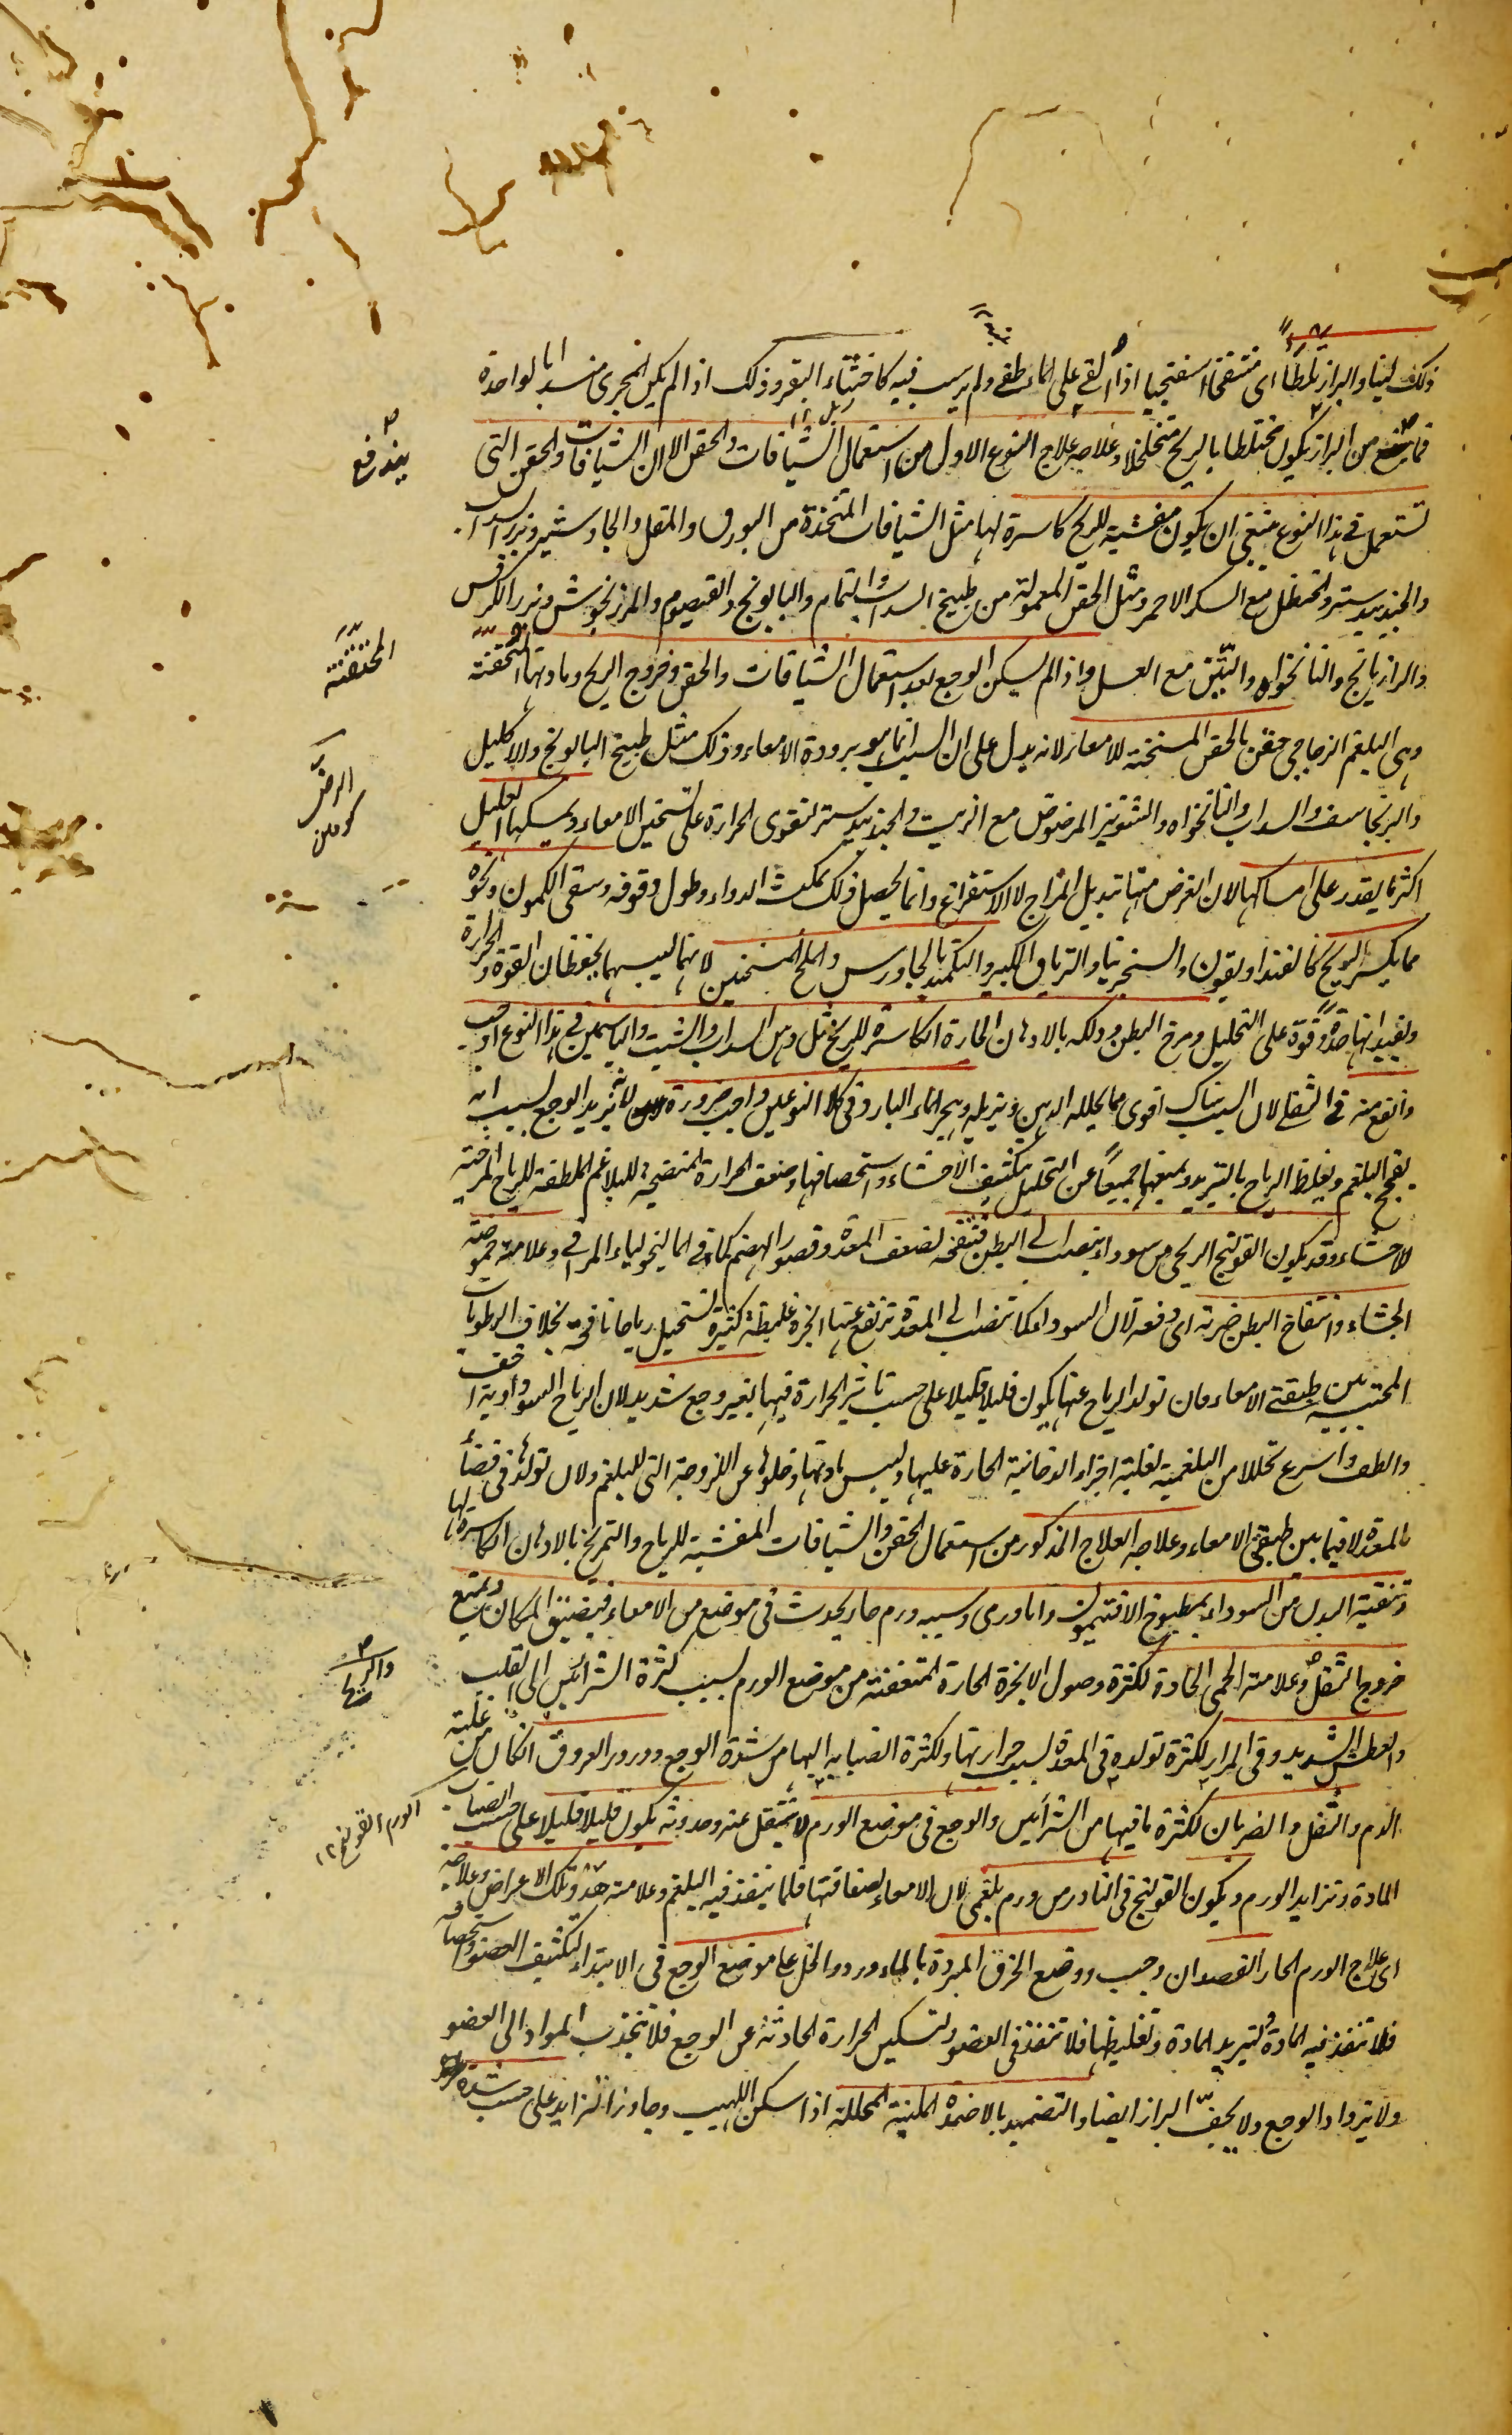 ذلك لينا والبراز تلطأ اى منتفخا اسفنجيا اذا القى على الماء طفى ولم يرسب فيه كاخثاء البقر وذلك اذا لم يكن المجرى منسدا بالواحدة
فما يندفع من البراز يكون مختلطا بالريح متخلخلا وعلاجه علاج النوع الاول من استعمال الشيافات والحقن الا ان الشيافات والحقن التى
تستعمل فى هذا النوع ينبغى ان يكون مفشية للريح كاسرة لها مثل الشيافات المتخذة من البورق والمقل والجاوشير وبزر السداب
والجندبيدستر والحنظل مع السكر الاحمر ومثل الحقن المعمولة من طبيخ السداب والنمام والبابونج والقيصوم والمرزنجوش وبزر الكرفس
والرازيانج والنانخواه والتين مع العسل واذا لم يسكن الوجع بعد استعمال الشيافات والحقن وخروج الريح ومادتها المحتقنة
وهى البلغم الزجاجى حقن بالحقن المسخنة للامعاء لانه يدل على ان السبب انما هو برودة الامعاء وذلك مثل طبيخ البابونج والاكليل
والبرنجاسف والسداب والنانخواه والشونيز المرضوض مع الزيت والجندبيدستر لتقوى الحرارة على تسخين الامعاء ويمسكها العليل
اكثر ما يقدر على امساكها لان الغرض منها تبديل المزاج لا الاستفراغ وانما يحصل ذلك بمكث الدواء وطول وقوفه وسقى الكمون ونحوه
مما يكسر الريح كالفنداديقون والسنجرينيا والترياق الكبير والتكميد بالجاورس والملح المسخنين لانهما ليبسهما يحفظان القوة والحرارة
ويفيدانها حدة وقوة على التحليل ومرخ البطن ودلكه بالادهان الحارة الكاسرة للريح مثل دهن السداب والشبت والياسمين فى هذا النوع اوجب
وانفع منه فى الثفلى لان السبب هناك اقوى مما يحلله الدهن ويزيله وهجر الماء البارد فى كلا النوعين واجب ضرورة لانه يزيد الوجع بسبب انه
يفجج البلغم ويغلظ الرياح بالتبريد ويمنعها جميعا عن التحليل بتكثيف الاحشاء واستحصافها وضعف الحرارة المنضجة للبلاغم الملطفة للرياح المرخية
للاحشاء وقد يكون القولنج الريحى من سوداء ينصب الى البطن فتنفخه لضعف المعدة وقصور الهضم كما فى الماليخولياء المراقى وعلامته حموضة
الجشاء وانتفاخ البطن ضربة اى دفعة لان السوداء كلما تنصب الى المعدة ترتفع عنها ابخرة غليظة كثيرة تستحيل رياحا نافخة بخلاف الرطوبات
المحتبسة بين طبقتى الامعاء فان تولد الرياح عنها يكون قليلا قليلا على حسب تاثير الحرارة فيها بغير وجع شديد لان الرياح السوداوية اخف
والطف واسرع تحللا من البلغمية لغلبة اجزاء الدخانية الحارة عليها وليبس مادتها وخلوها عن اللزوجة التى للبلغم ولان تولدها فى فضاء
المعدة لا فيما بين طبقتى الامعاء وعلاجه العلاج المذكور من استعمال الحقن والشيافات المفشية للرياح والتمريخ بالادهان الكاسرة لها
وتنقية البدن من السوداء بمطبوخ الافتيمون واما ورمى وسببه ورم حار يحدث فى موضع من الامعاء فيضيق المكان ويمنع
خروج الثفل وعلامته الحمى الحادة لكثرة وصول الابخرة الحارة المتعفنة من موضع الورم بسبب كثرة الشرائين الى القلب
والعطش الشديد وقى المرار لكثرة تولده فى المعدة بسبب حرارتها ولكثرة انصبابه اليها من شدة الوجع ودرور العروق ان كان من غلبة
الدم والثقل والضربان لكثرة ما فيها من الشرائين والوجع فى موضع الورم لا ينتقل عنه وحدوثه يكون قليلا قليلا على حسب انصباب
المادة وتزايد الورم ويكون القولنج فى النادر من ورم بلغمى لان الامعاء لصفاقتها قلما ينفذ فيه البلغم وعلامته هذه وتلك الاعراض وعلاجه
اى علاج الورم الحار الفصد ان وجب ووضع الخرق المبردة بالماء ورد والخل على موضع الوجع فى الابتداء لتكثيف العضو واستحصافه
فلا تنفذ فيه المادة ولتبريد المادة وتغليظها فلا تنفذ فى العضو ولتسكين الحرارة الحادثة عن الوجع فلا تنجذب المواد الى العضو
ولا يزداد الوجع ولا يجف البراز ايضا والتضميد بالاضمدة الملينة المحللة اذا سكن اللهيب وجاوز التزايد على حسب شدة
يندفع
المحتقنة
والرياح
الورم القولنج ١٢